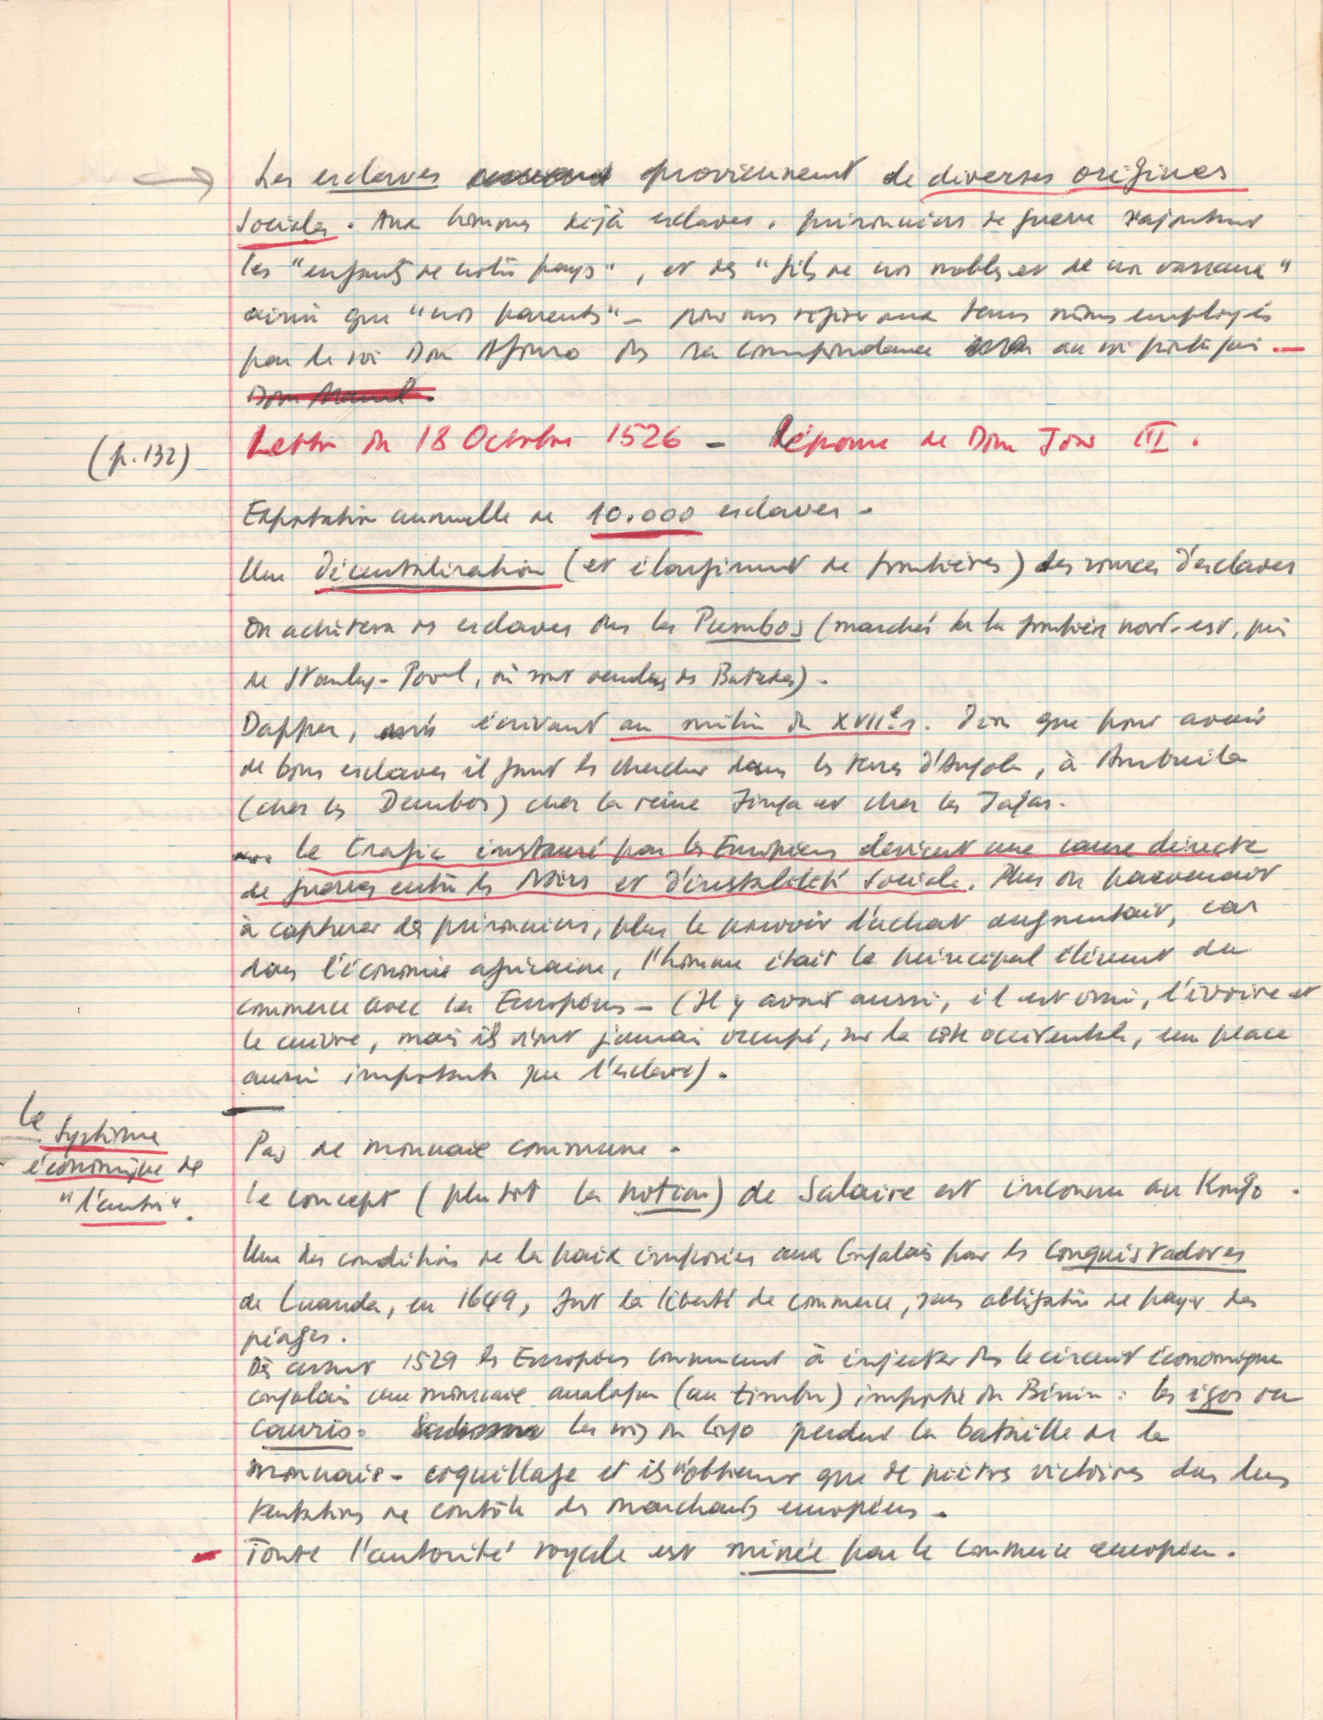 → Les esclaves proviennent de diverses origines
sociales. Aux hommes déjà esclaves, prisonniers de guerre s'ajoutent
les "enfants de notre pays", et des "fils de nos nobles et de nos vassaux"
ainsi que "nos parents" – pour nous référer aux termes mêmes employés
par le roi Dom Afonso ds sa correspondance au roi portugais –
Dom Manuel.
(p. 132) Lettre du 18 Octobre 1526 – Réponse de Dom Joao III.
Exportation annuelle de 10.000 esclaves –
Une décentralisation (et élargissement de frontières) des sources d'esclaves
On achètera des esclaves ds les Pumbos (marchés de la frontière nord-est, près
de Stanley-Pool, où sont vendus des Batekes) –
Dapper, écrivant au milieu du XVIIe s. dira que pour avoir
de bons esclaves il faut les chercher dans les terres d'Angola, à Ambuila
(chez les Dembos) chez la reine Jinga et chez les Jagas.
Le trafic instauré par les Européens devient une cause directe
de guerres entre les Noirs et d'instabilité sociale. Plus on parvenait
à capturer des prisonniers, plus le pouvoir d'achat augmentait, car
dans l'économie africaine, l'homme était le principal élément du
commerce avec les Européens – (Il y avait aussi, il est vrai, l'ivoire et
le cuivre, mais ils n'ont jamais occupé, sur la côte occidentale, une place
aussi importante que l'esclave).
Le système
économique de
"l'entre".
Pas de monnaie commune –
Le concept (plutôt la notion) de Salaire est inconnu au Kongo.
Une des conditions de la paix imposées aux Congolais par les Conquistadores
de Luanda, en 1649, fut la liberté de commerce, sans obligation de payer des
péages.
Dès avant 1529 les Européens commencent à injecter ds le circuit économique
congolais une monnaie analogue (au timbu) importée du Bénin : les igos ou
cauris. Les rois du Congo perdent la bataille de la
monnaie-coquillage et ils n'obtiennent que de piètres victoires dans leurs
tentatives de contrôle des marchands européens –
– Toute l'autorité royale est minée par le commerce européen.